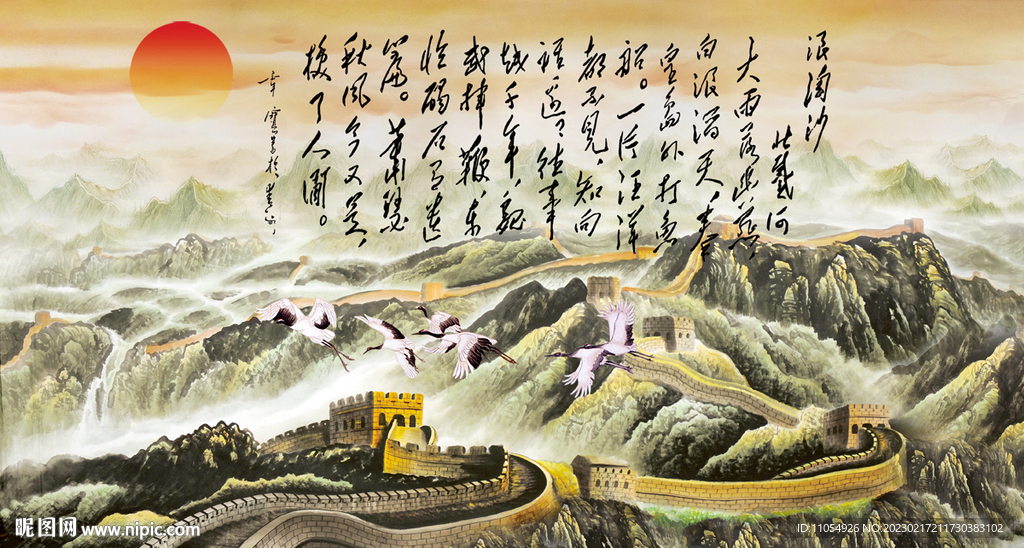 浪淘沙
北戴河
大雨落幽燕，
白浪滔天，秦
皇岛外打鱼
船。一片汪洋
都不见，知向
谁边？往事
越千年，魏
武挥鞭，东
临碣石有遗
篇。萧瑟
秋风今又是，
换了人间。
昵图网 www.nipic.com
ID:11054926 NO:20230217211730383102